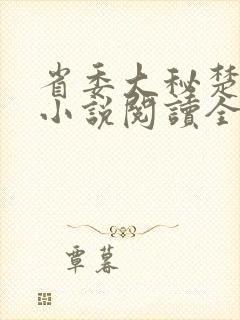 省委大秘楚
小説閱讀全
覃暮